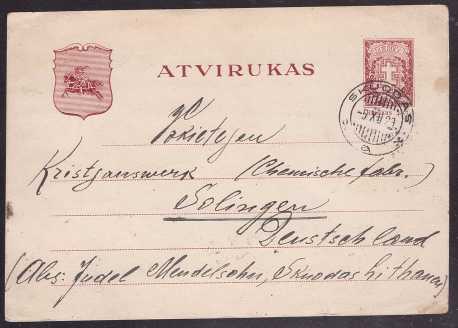 ATVIRUKAS
SKUODAS
Kristjanswerk (Chemische fabr.)
Solingen
Deutschland
(Abs: Judel Mendelsohn, Skuodas Lithauen)